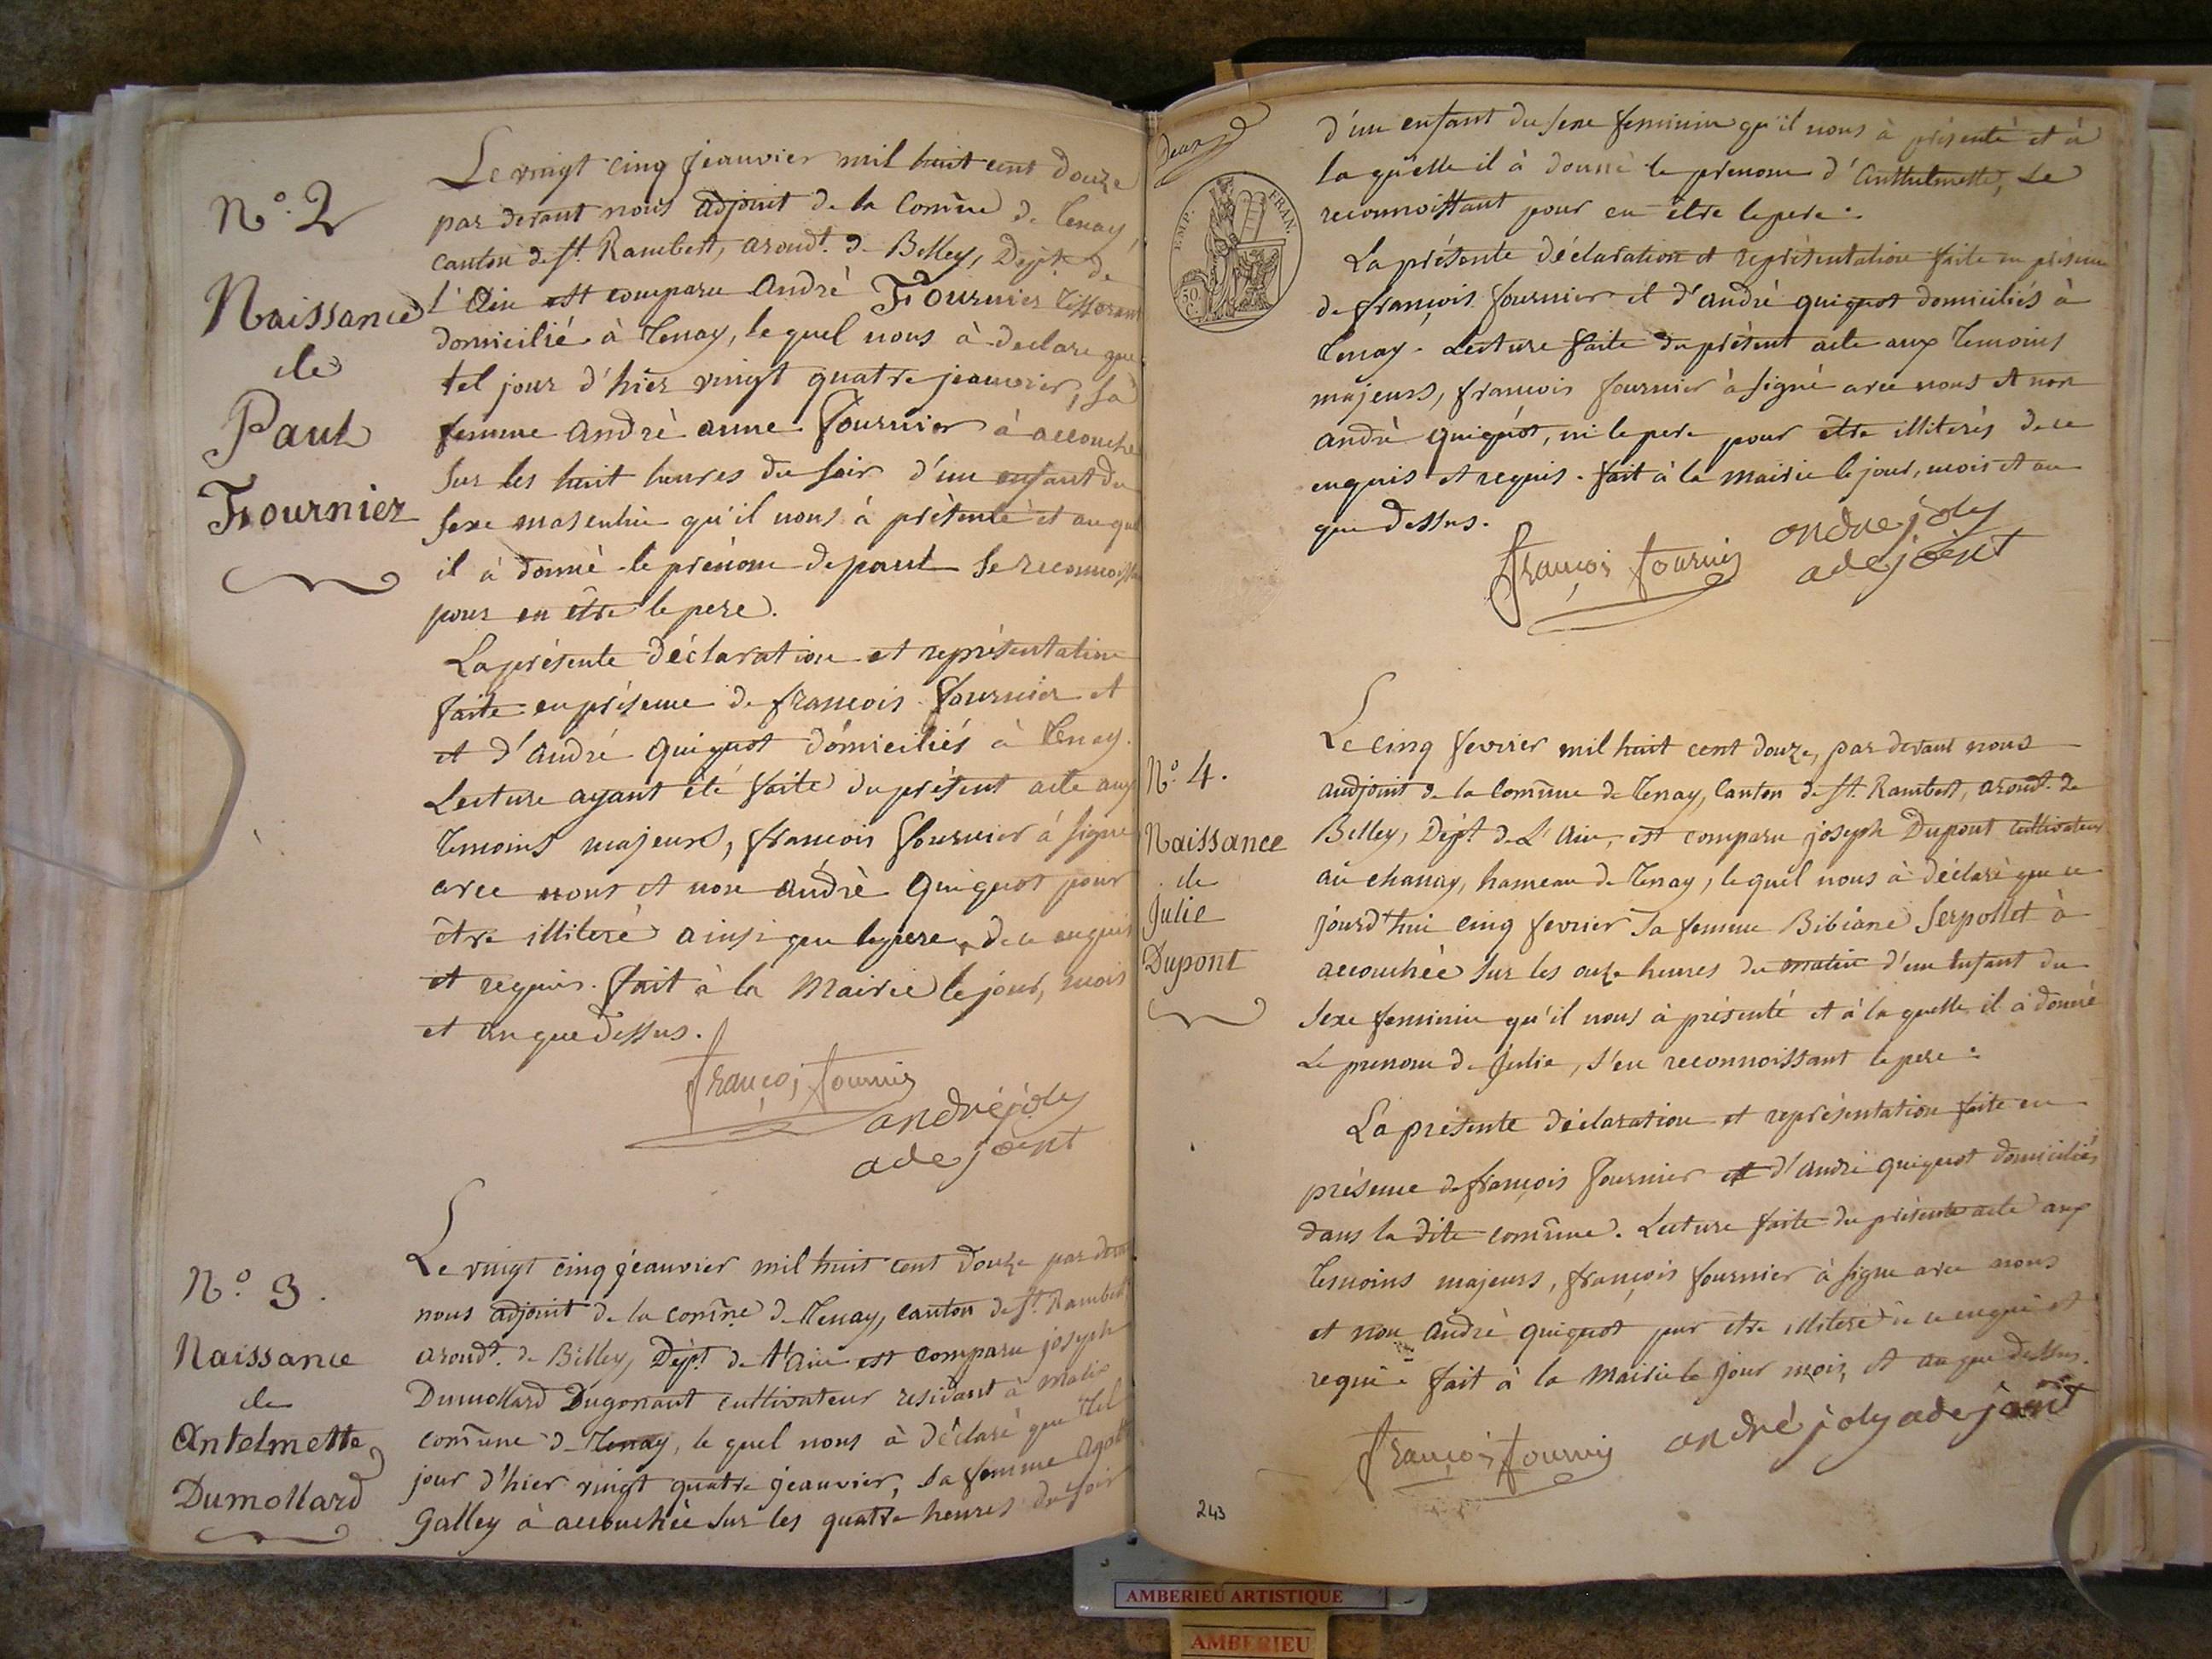 N.º 2
Naissance
de
Paul
Fournier
Le vingt cinq jeanvier mil huit cent douze
par devant nous adjoint de la Comũne de Tenay,
canton de St. Rambert, arondt. de Belley, Dept. de
l'Ain est comparu André Fournier Tisserant
domicilié à Tenay, le quel nous à declare que
tel jour d'hier vingt quatre jeanvier, sa
femme andrè anne Fournier à accouche
sur les huit heures du soir d'un enfant du
sexe masculin qu'il nous à présenté et au quel
il à donnè le prénom de paul se reconnoissant
pour en être le pere.
La présente déclaration et représentation
faite en présence de françois Fournier et
et d'andré Quiquot domiciliés à Tenay.
Lecture ayant été faite du présent acte aux
temoins majeurs, françois Fournier à signe
avec nous et non andrè Quiquot pour
être illiteré ainsi que le pere, de ce enquis
et requis. fait à la Mairie le jour, mois
et an que dessus.
françois fournier
andré joly
adejoint
N.º 3.
Naissance
de
Antelmette
Dumollard
Le vingt cinq jeanvier mil huit cent douze par devant
nous adjoint de la comũne de Tenay, canton de St. Rambert
arondt. de Billey, Dépt. de l'Ain est comparu joseph
Dumollard Dugonaut cultivateur residant à malix
comũne de Tenay, le quel nous à déclaré que tel
jour d'hier vingt quatre jeanvier, sa femme
Galley à accouchée sur les quatre heures du soir
Deux
EMP. FRAN.
50
C.
d'un enfant du sexe feminin qu'il nous à présenté et à
la quelle il à donné le prenom d'Anthelmette, se
reconnoissant pour en être le pere.
La présente déclaration et représentation faite en présence
de françois fournier et d'andrè quiquot domiciliés à
Tenay. Lecture faite du présent acte aux temoins
majeurs, françois fournier à signé avec nous et non
andrè quiquot, ni le pere pour etre illiterés de ce
enquis et requis. fait à la mairie le jour, mois et an
que dessus.
françois fournier
andre joly
adejoint
N.º 4.
Naissance
de
Julie
Dupont
Le cinq fevrier mil huit cent douze, par devant nous
audjoint de la Comũne de Tenay, Canton de St. Rambert, arondt. de
Belley, Dépt. de L'Ain, est comparu joseph Dupont cultivateur
au chanay, hameau de Tenay, le quel nous à déclaré que ce
jourd'hui cinq fevrier sa femme Bibiane Serpollet à
accouchée sur les onze heures du matin d'un enfant du
sexe feminin qu'il nous à présenté et à la quelle il à donné
Le prenom de Julie, s'en reconnoissant le pere.
La présente déclaration et représentation faite en
présence de françois Fournier et d'andrè quiquot domiciliés
dans la dite comũne. Lecture faite du présent acte aux
temoins majeurs, françois fournier à signe avec nous
et non andrè quiquot pour etre illiteré de ce enquis et
requi. fait à la Mairie le jour mois, et an que dessus.
françois fournier
andré joly adejoint
243
AMBERIEU ARTISTIQUE
AMBERIEU